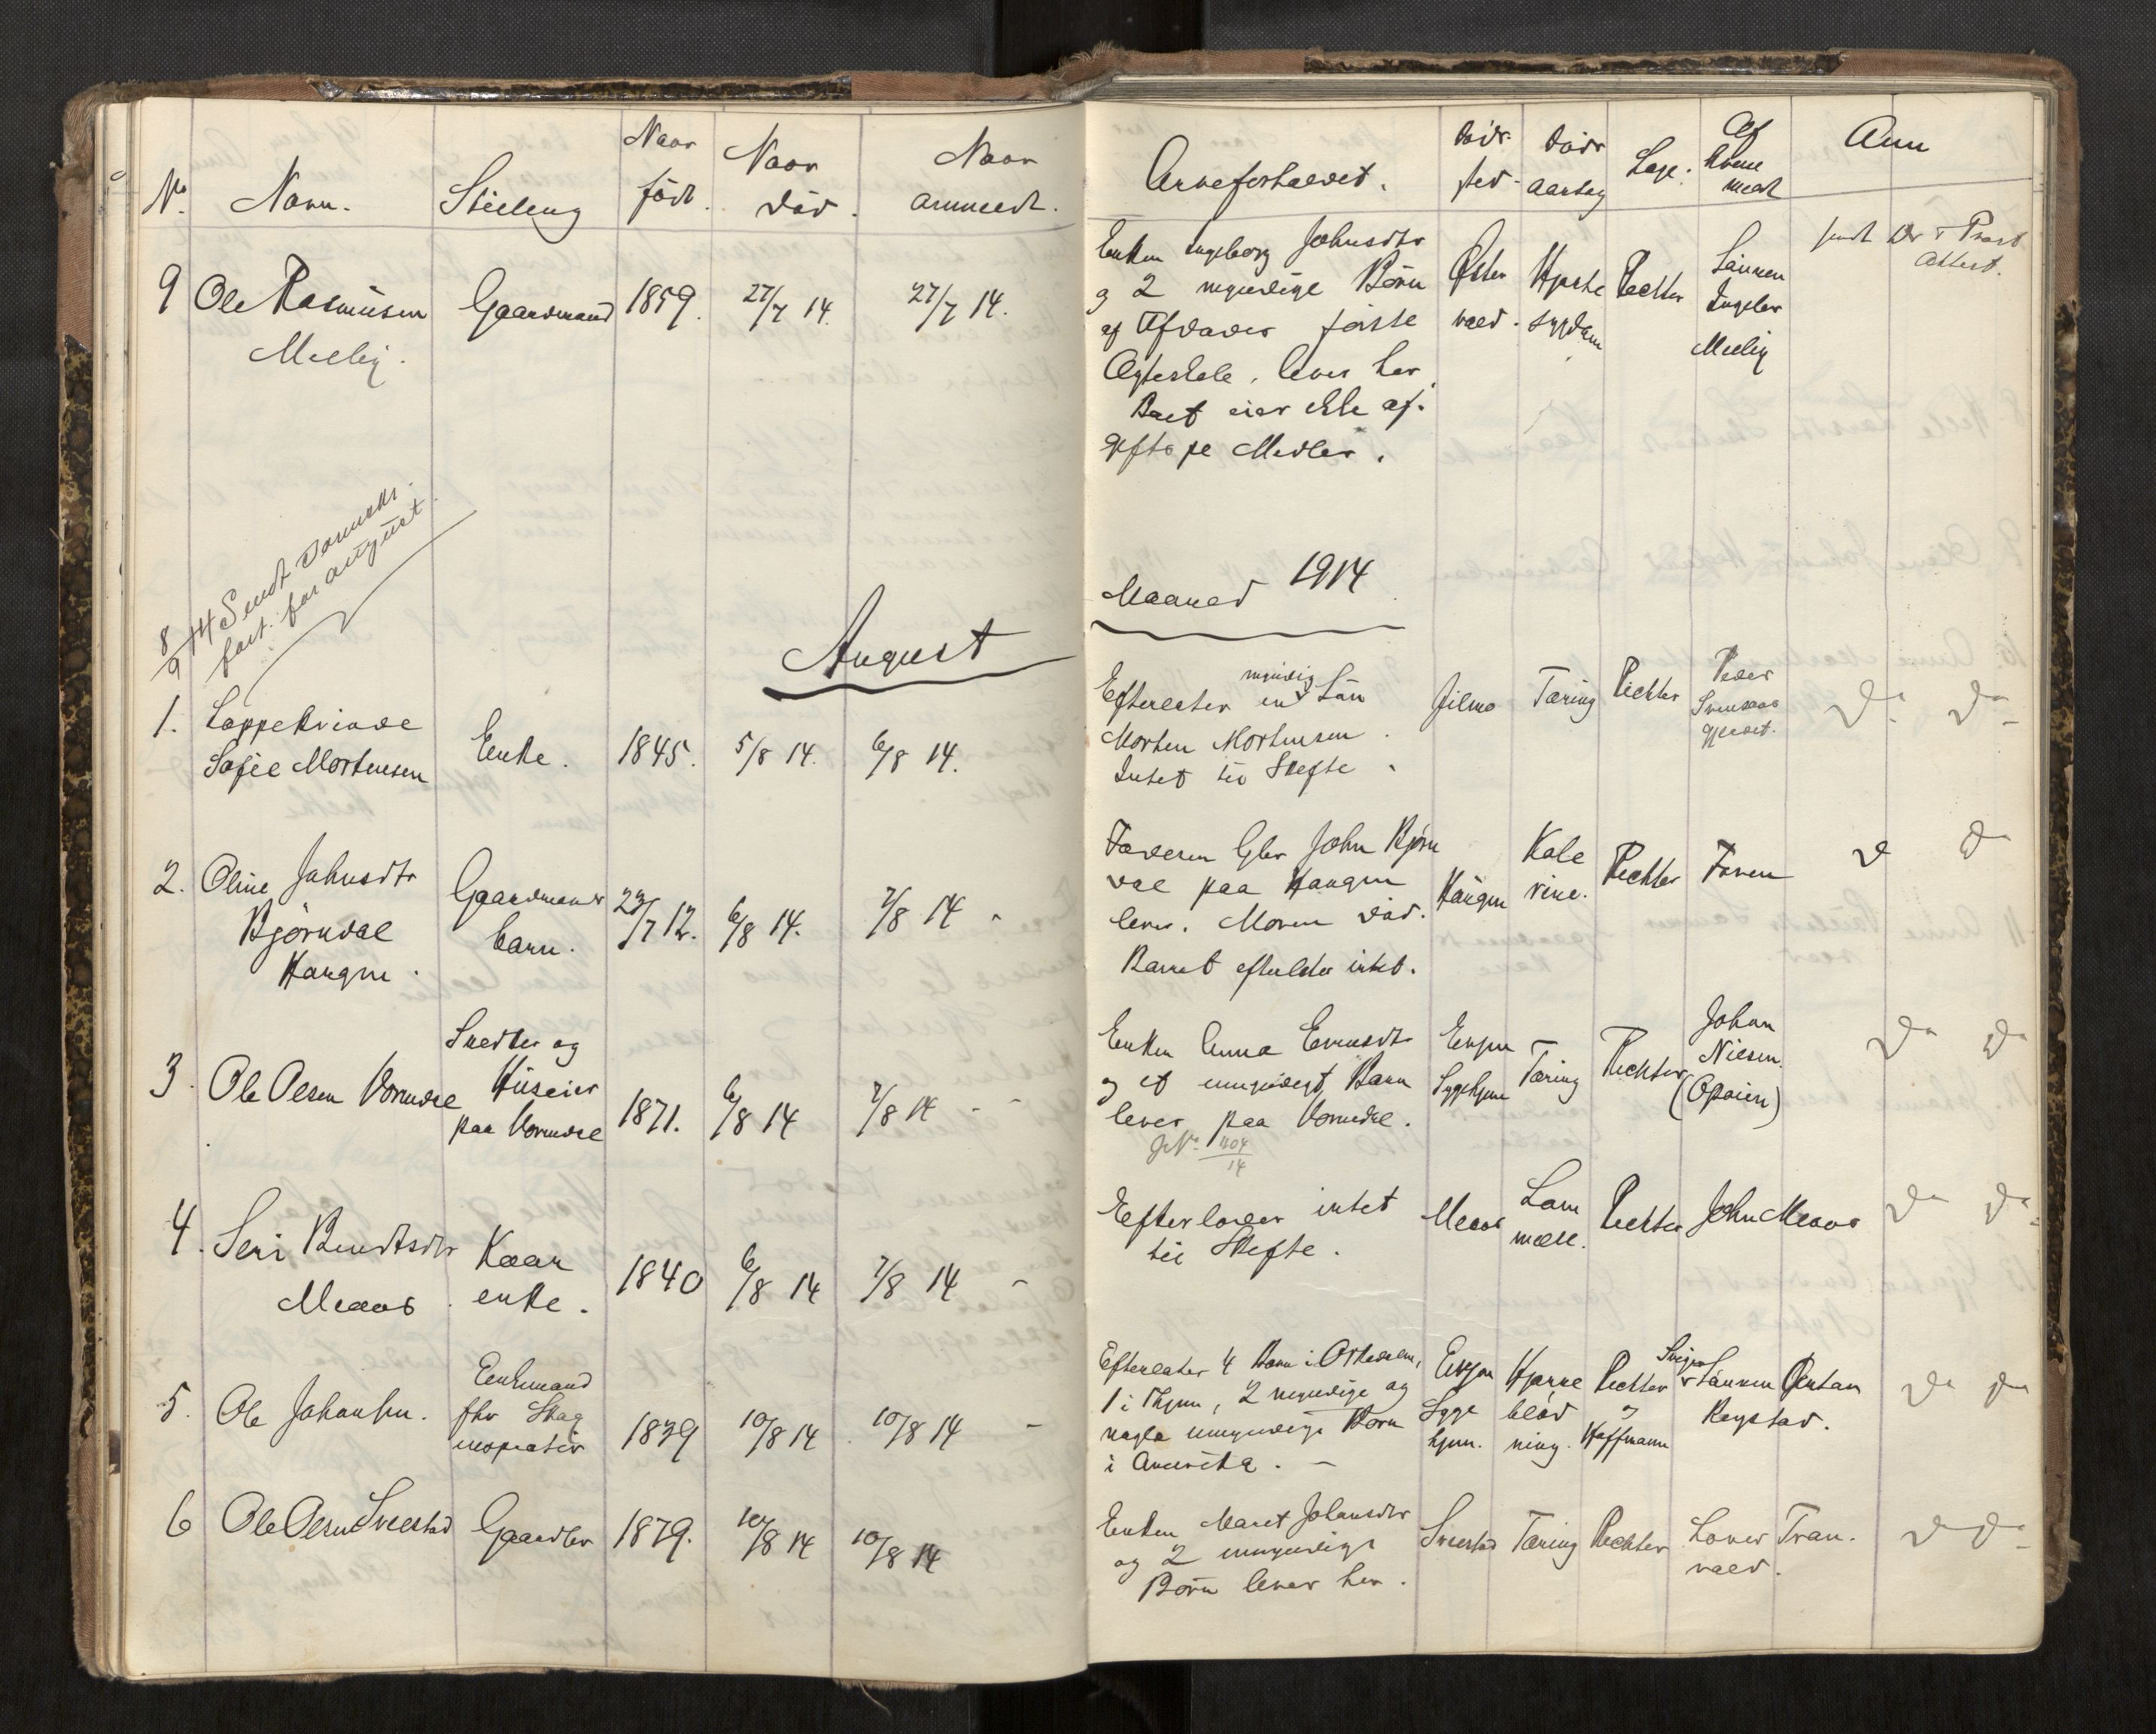 No. Navn. Stilling Naar født. Naar død. Naar anmeldt.
Arveforholdet. Døds- sted. Døds aarsag Læge. Af hvem meldt Anm
9 Ole Rasmusen
Melby.
Gaardmand 1859. 27/7 14. 27/7 14.
Enken Ingeborg Johnsdtr
og 2 myndige Børn
af Afdødes første
Ægteskab, lever her.
Boet eier ikke af-
giftspl Midler.
Øster
vold.
Hjerte
sygdom
Richter
Sønnen
Ingebr
Melby
sendt Dr. Prest
Attest.
8/9 14 Sendt
fort. for august.
August
Maaned 1914
1. Lappekvinde
Sofie Mortensen
Enke. 1845. 5/8 14. 6/8 14.
myndig
Efterlater en Søn
Morten Mortensen.
Intet til Skifte.
Tæring Richter
Peder
D. D.
2. Oline Johnsdtr
Bjørndal
Haugen.
Gaardmands
barn.
23/7 12. 6/8 14. 7/8 14.
Faderen Gbr John Bjørn
dal paa Haugen
lever. Moren død.
Barnet efterlater intet.
Haugen
Kole
rine.
Richter Faren D D
3. Ole Olsen Vormdal
Snedker og
Huseier
paa Vormdal
1871. 6/8 14 7/8 14
Enken Anna Evensdtr
og et umyndigt Barn
lever paa Vormdal.
JNo. 404/14
Sygehjem
Tæring
Richter
Johan
Nilsen.
(Opøien)
Do Do
4. Seri Bendtsdtr
Meaas.
Kaar
enke.
1840 6/8 14 7/8 14
Efterlader intet
til Skifte.
Meaas
Lam
melse.
Richter John Meaas Do Do
5. Ole Johansen.
Enkemand
fhv Skog
inspektør
1839 10/8 14 10/8 14
Efterlater 4 Barn i Orkedalen,
1 i Thjem, 2 myndige og
nogle umyndige Børn
i Amerika.
Syge
hjem.
Hjerne
blød
ning.
Richter
og
Hoffmann
Sønnen Gustav
Reystad.
Do Do
6 Ole Olsen Sveestad Gaardbr 1879. 10/8 14 10/8 14
Enken Maret Johansdtr
og 2 umyndige
Børn lever her.
Sveestad Tæring Richter
D D